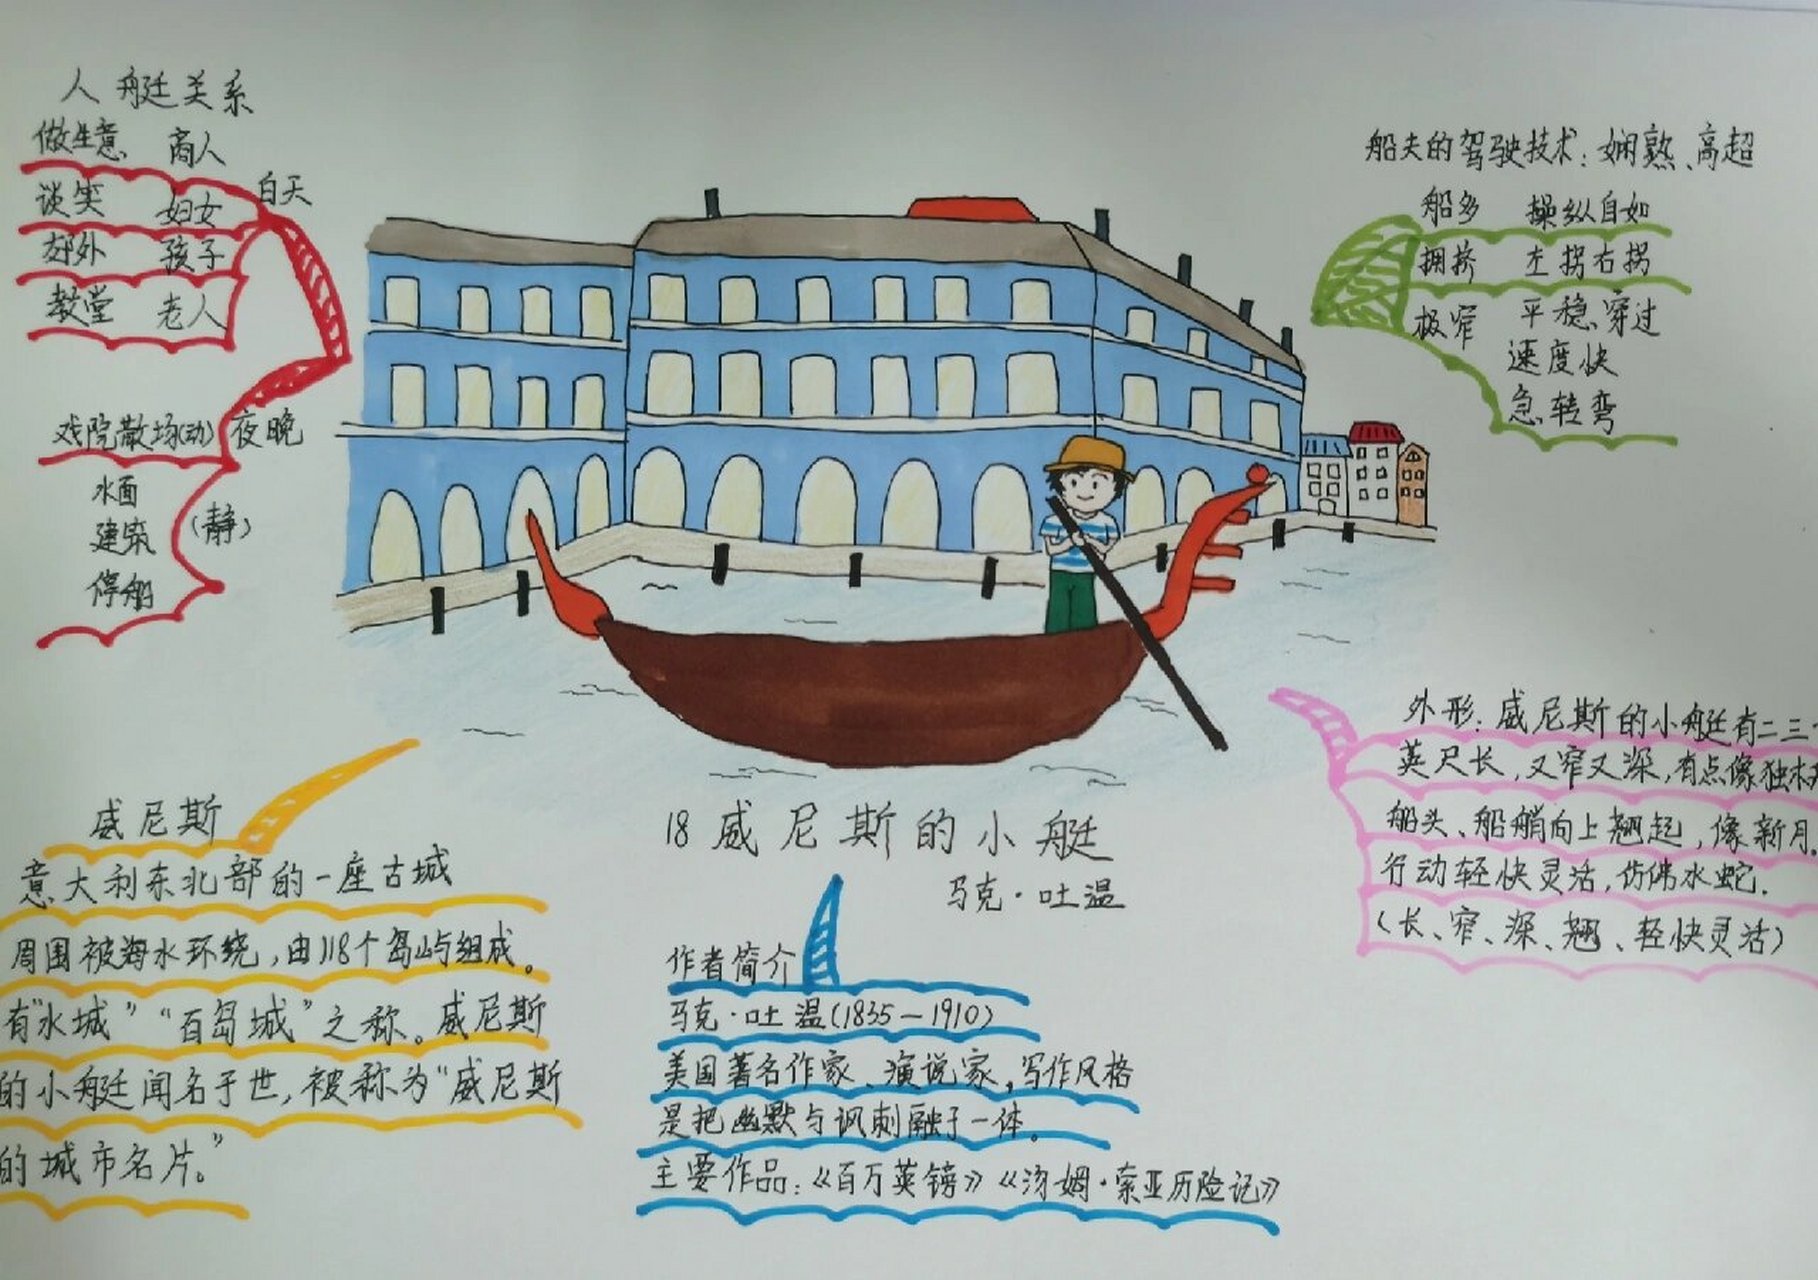 人艇关系
做生意 商人
谈笑 妇女
郊外 孩子
教堂 老人
白天
戏院散场(动) 夜晚
水面
建筑
停船
(静)
船夫的驾驶技术:娴熟、高超
船多 操纵自如
拥挤 左拐右拐
极窄 平稳穿过
速度快
急转弯
18 威尼斯的小艇
马克·吐温
威尼斯
意大利东北部的一座古城
周围被海水环绕,由118个岛屿组成。
有“水城”“百岛城”之称。威尼斯
的小艇闻名于世,被称为“威尼斯
的城市名片。”
作者简介
马克·吐温(1835—1910)
美国著名作家、演说家,写作风格
是把幽默与讽刺融于一体。
主要作品:《百万英镑》《汤姆·索亚历险记》
外形:威尼斯的小艇有二三
英尺长,又窄又深,有点像独木
船头、船艄向上翘起,像新月,
行动轻快灵活,仿佛水蛇.
(长、窄、深、翘、轻快灵活)